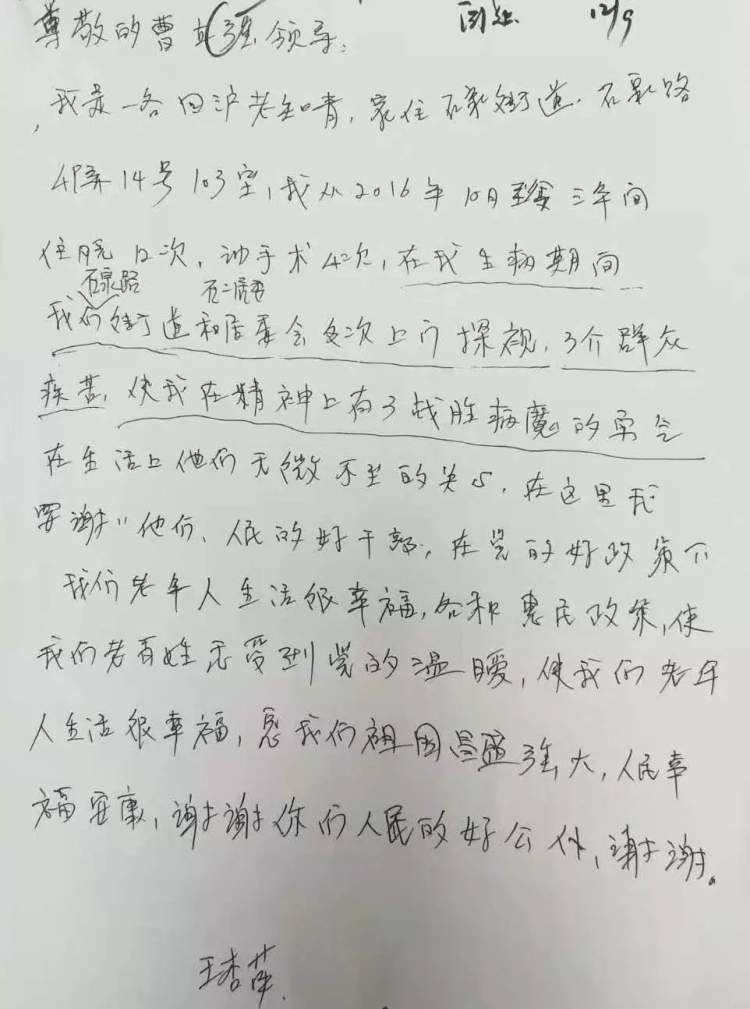 尊敬的曹立强领导: 12/9
我是一名回沪老知青,家住石泉街道.石泉路
弄14号103室,我从2016年10月至今三年间
住院12次,动手术4次,在我生病期间
石泉路 石二居委
我们街道和居委会多次上门探视,了介群众
疾苦,使我在精神上有了战胜病魔的勇气
在生活上他们无微不至的关心,在这里我
要谢谢他们、人民的好干部,在党的好政策下
我们老年人生活很幸福,各种惠民政策,使
我们老百姓感受到党的温暖,使我们老年
人生活很幸福,愿我们祖国昌盛强大,人民幸
福安康,谢谢你们人民的好公仆,谢谢。
王杏萍